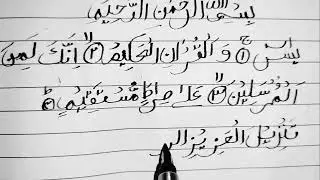 بِسْمِ اللهِ الرَّحْمٰنِ الرَّحِيْمِ
يٰسٓ ۝١ وَالْقُرْاٰنِ الْحَكِيْمِ ۝٢ اِنَّكَ لَمِنَ
الْمُرْسَلِيْنَ ۝٣ عَلٰى صِرَاطٍ مُّسْتَقِيْمٍ ۝٤
تَنْزِيْلَ الْعَزِيْزِ